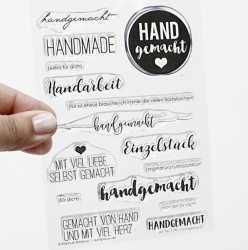 handgemacht
HAND
gemacht
HANDMADE
Handarbeit
für so etwas brauche ich immer die vielen Bastelsachen!
handgemacht
Einzelstück
MIT VIEL LIEBE
SELBST GEMACHT
für dich!
handgemacht
GEMACHT VON HAND
UND MIT VIEL HERZ
HANDGEMACHT